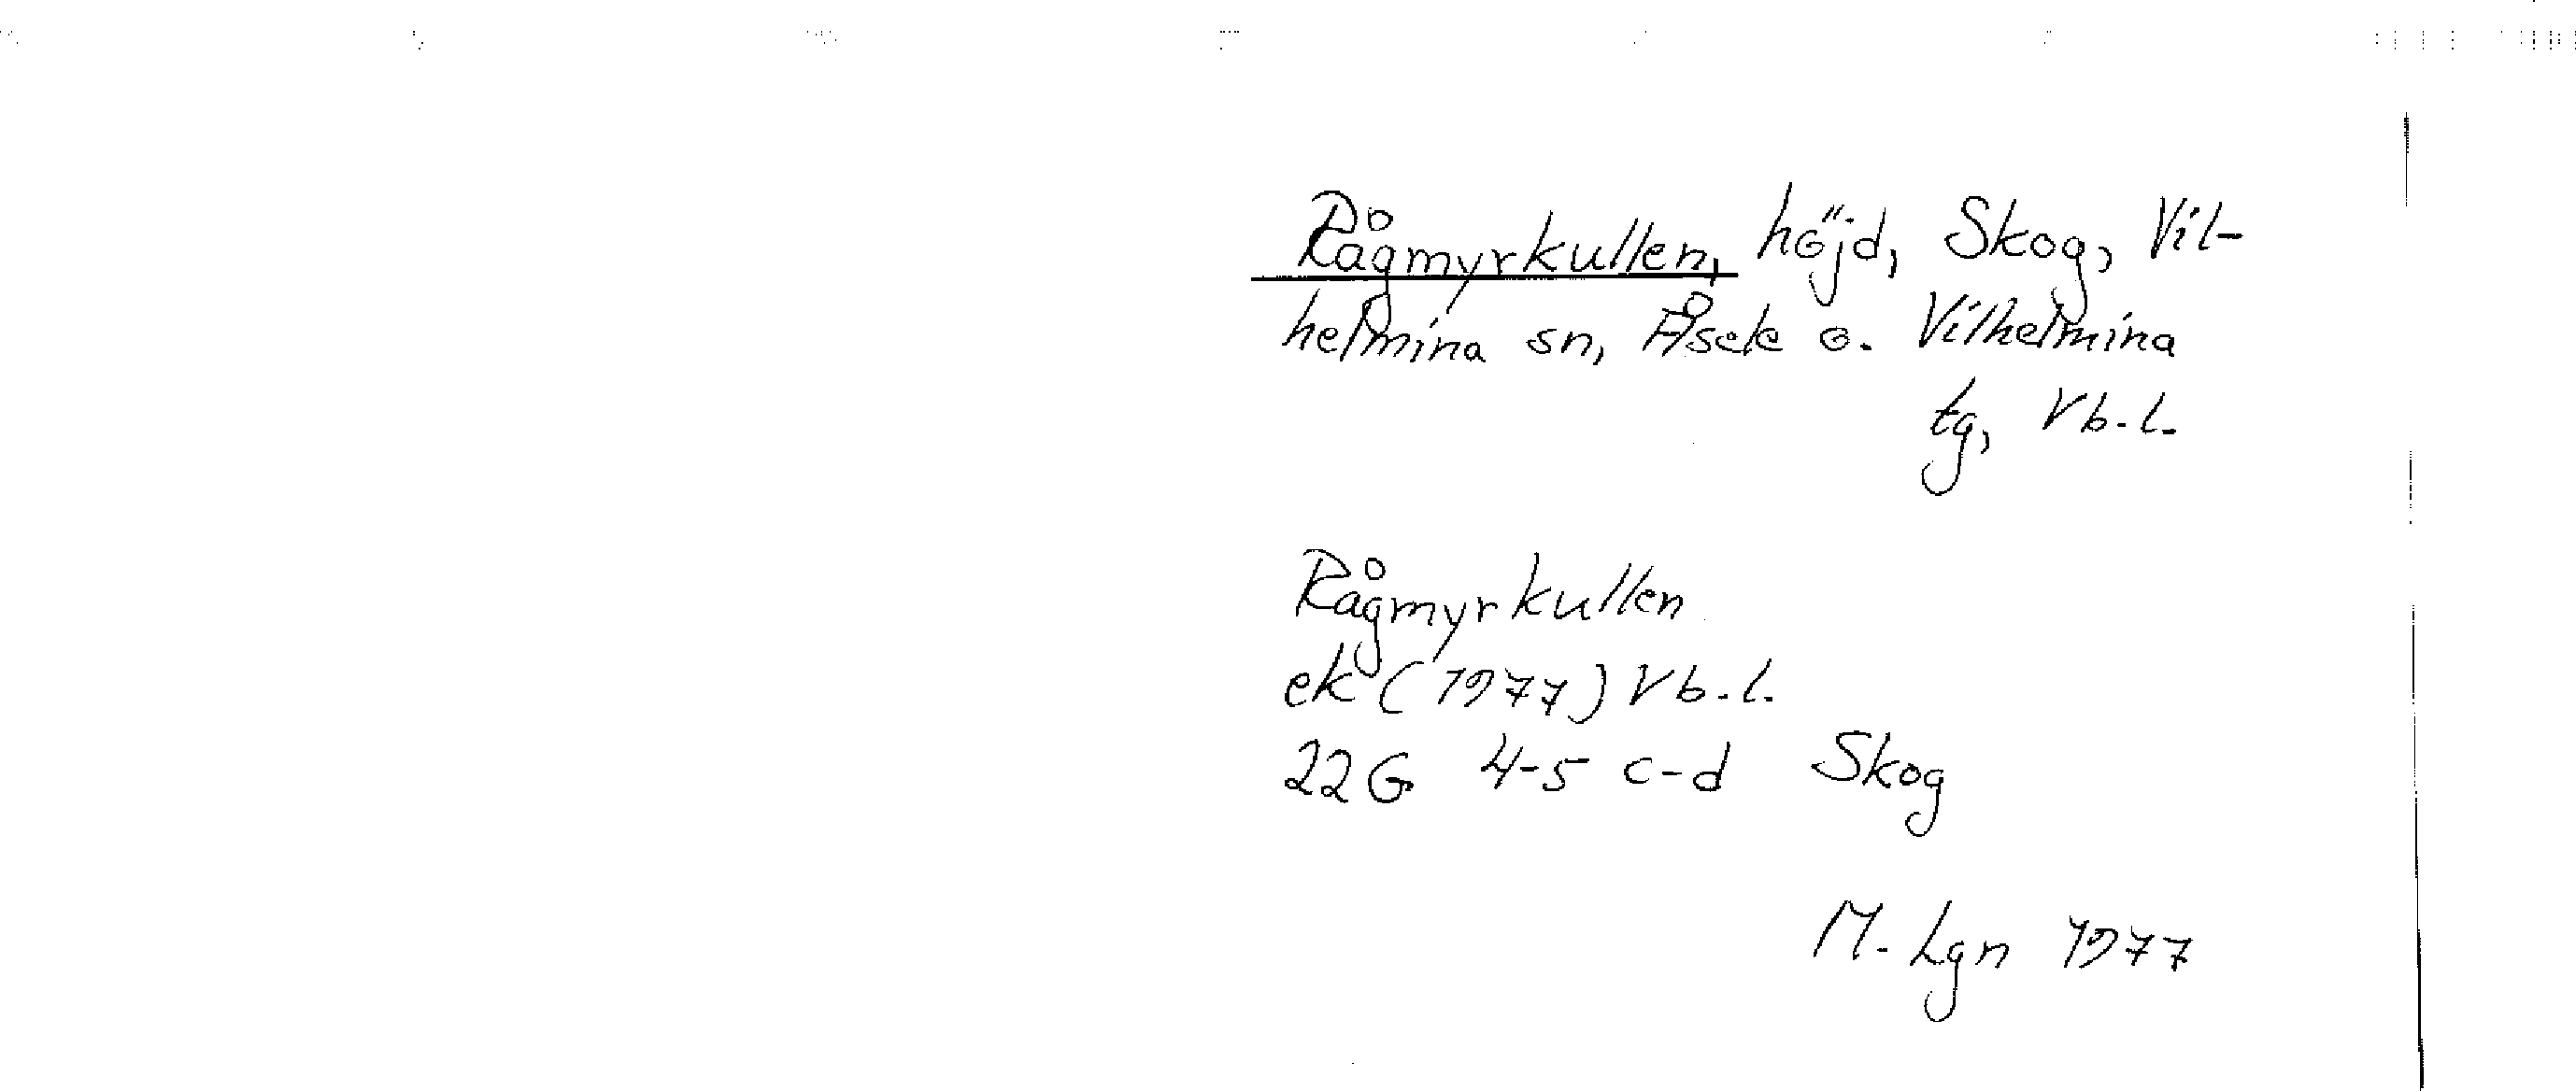 Rågmyrkullen, höjd, Skog, Vil-
helmina sn, Åsele o. Vilhelmina
tg, Vb.l.
Rågmyrkullen
ek (1977) Vb.l.
22G 4-5 c-d Skog
M. Lgn 1977